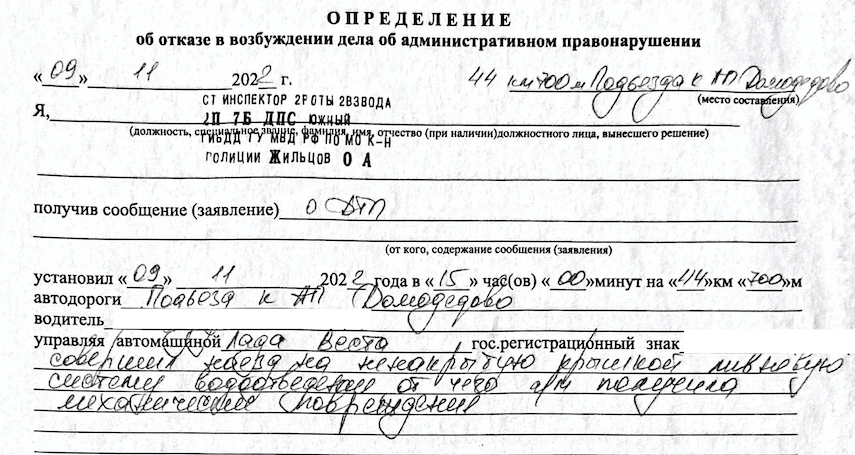 ОПРЕДЕЛЕНИЕ
об отказе в возбуждении дела об административном правонарушении
«09» 11 2022 г. 44 км 700 м Подъезда к АП Домодедово
(место составления)
СТ ИНСПЕКТОР 2РОТЫ 2ВЗВОДА
Я, 2П 7Б ДПС ЮЖНЫЙ
(должность, специальное звание, фамилия, имя, отчество (при наличии)должностного лица, вынесшего решение)
ГИБДД ГУ МВД РФ ПО МО К-Н
ПОЛИЦИИ ЖИЛЬЦОВ О А
получив сообщение (заявление) о ДТП
(от кого, содержание сообщения (заявления)
установил «09» 11 2022 года в «15» час(ов) «00»минут на «44»км «700»м
автодороги Подъезд к АП Домодедово
водитель
управляя автомашиной Лада Веста гос.регистрационный знак
совершил наезд на ненакрытую крышкой ливневую
систему водоотведения от чего а/м получила
механические повреждения